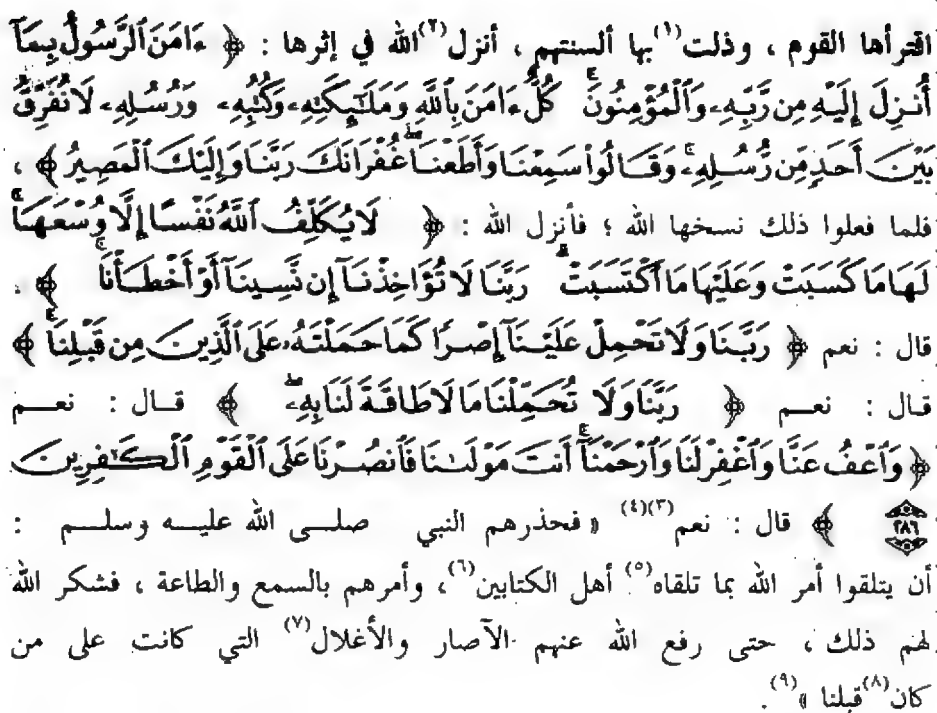 اقترأها القوم ، وذلت(١) بها ألسنتهم ، أنزل(٢) الله في إثرها : ﴿ ءَامَنَ ٱلرَّسُولُ بِمَآ
أُنزِلَ إِلَيْهِ مِن رَّبِّهِۦ وَٱلْمُؤْمِنُونَ ۚ كُلٌّ ءَامَنَ بِٱللَّهِ وَمَلَٰٓئِكَتِهِۦ وَكُتُبِهِۦ وَرُسُلِهِۦ لَا نُفَرِّقُ
بَيْنَ أَحَدٍ مِّن رُّسُلِهِۦ ۚ وَقَالُوا۟ سَمِعْنَا وَأَطَعْنَا ۖ غُفْرَانَكَ رَبَّنَا وَإِلَيْكَ ٱلْمَصِيرُ ﴾ ،
فلما فعلوا ذلك نسخها الله ؛ فأنزل الله : ﴿ لَا يُكَلِّفُ ٱللَّهُ نَفْسًا إِلَّا وُسْعَهَا ۚ
لَهَا مَا كَسَبَتْ وَعَلَيْهَا مَا ٱكْتَسَبَتْ ۗ رَبَّنَا لَا تُؤَاخِذْنَآ إِن نَّسِينَآ أَوْ أَخْطَأْنَا ۚ ﴾ .
قال : نعم ﴿ رَبَّنَا وَلَا تَحْمِلْ عَلَيْنَآ إِصْرًا كَمَا حَمَلْتَهُۥ عَلَى ٱلَّذِينَ مِن قَبْلِنَا ۚ ﴾
قال : نعم ﴿ رَبَّنَا وَلَا تُحَمِّلْنَا مَا لَا طَاقَةَ لَنَا بِهِۦ ۖ ﴾ قال : نعم
﴿ وَٱعْفُ عَنَّا وَٱغْفِرْ لَنَا وَٱرْحَمْنَآ ۚ أَنتَ مَوْلَىٰنَا فَٱنصُرْنَا عَلَى ٱلْقَوْمِ ٱلْكَٰفِرِينَ
٢٨٦ ﴾ قال : نعم(٣)(٤) « فحذرهم النبي صلى الله عليه وسلم :
أن يتلقوا أمر الله بما تلقاه(٥) أهل الكتابين(٦) ، وأمرهم بالسمع والطاعة ، فشكر الله
لهم ذلك ، حتى رفع الله عنهم الآصار والأغلال(٧) التي كانت على من
كان(٨) قبلنا »(٩) .